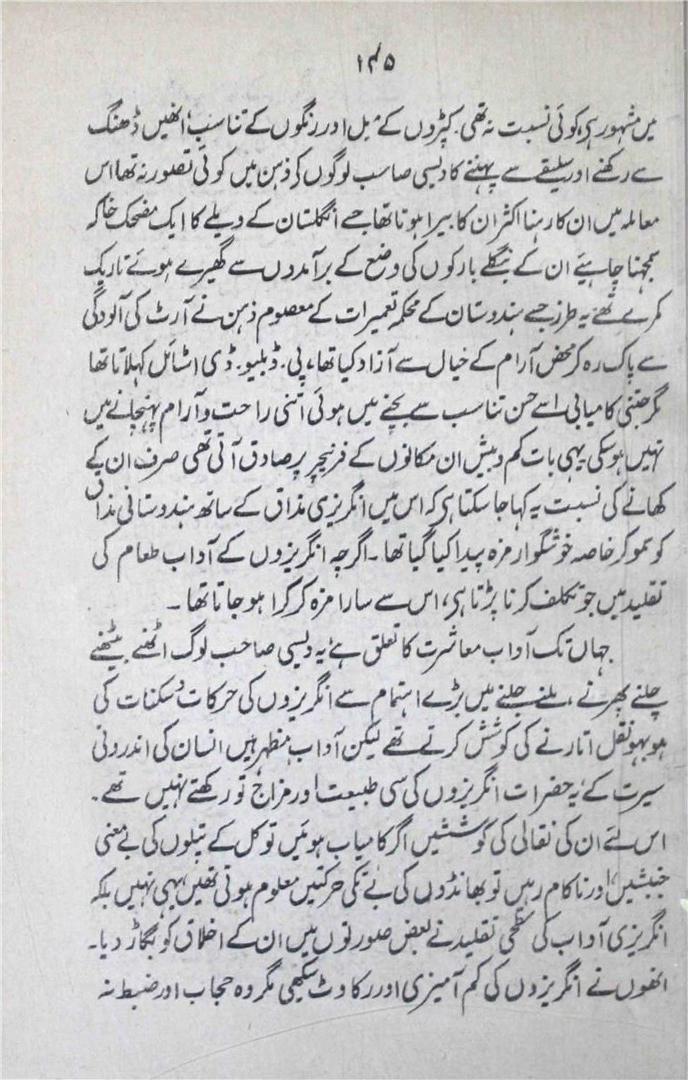 ۱۴۵
میں مشہور ہی کوئی نسبت نہ تھی. کپڑوں کے میل اور رنگوں کے تناسب، انھیں ڈھنگ
سے رکھنے اور سلیقے سے پہننے کا دیسی صاحب لوگوں کی ذہن میں کوئی تصور نہ تھا اس
معاملہ میں ان کا رہنا اکثر ان کا بیرا ہوتا تھا جسے انگلستان کے ویلے کا ایک مضحک خاکہ
سمجھنا چاہیئے ان کے بنگلے بارکوں کی وضع کے برآمدوں سے گھیرے ہوئے تاریک
کمرے تھے یہ طرز جسے ہندوستان کے محکمہ تعمیرات کے معصوم ذہن نے آرٹ کی آلودگی
سے پاک رہ کر محض آرام کے خیال سے آزاد کیا تھا، پی. ڈبلیو. ڈی اسٹائل کہلاتا تھا
مگر جتنی کامیابی اسے حسن تناسب سے بچنے میں ہوئی اتنی راحت و آرام پہنچانے میں
نہیں ہو سکی یہی بات کم و بیش ان مکانوں کے فرنیچر پر صادق آتی تھی صرف ان کے
کھانے کی نسبت یہ کہا جا سکتا ہی کہ اس میں انگریزی مذاق کے ساتھ ہندوستانی مذاق
کو سمو کر خاصہ خوشگوار مزہ پیدا کیا گیا تھا۔ اگرچہ انگریزوں کے آداب طعام کی
تقلید میں جو تکلف کرنا پڑتا ہی، اس سے سارا مزہ کرکرا ہو جاتا تھا۔
جہاں تک آداب معاشرت کا تعلق ہے یہ دیسی صاحب لوگ اٹھنے بیٹھنے
چلنے پھرنے، ملنے جلنے میں بڑے اہتمام سے انگریزوں کی حرکات و سکنات کی
ہو بہو نقل اتارنے کی کوشش کرتے تھے لیکن آداب مظہر ہیں انسان کی اندرونی
سیرت کے یہ حضرات انگریزوں کی سی طبیعت اور مزاج تو رکھتے نہیں تھے۔
اس لئے ان کی نقالی کی کوششیں اگر کامیاب ہوئیں تو کل کے پتلوں کی بے معنی
جنبشیں، اور ناکام رہیں تو بھانڈوں کی بے تکی حرکتیں معلوم ہوتی تھیں یہی نہیں بلکہ
انگریزی آداب کی سطحی تقلید نے بعض صورتوں میں ان کے اخلاق کو بگاڑ دیا۔
انھوں نے انگریزوں کی کم آمیزی اور رکاوٹ سیکھی مگر وہ حجاب اور ضبط نہ